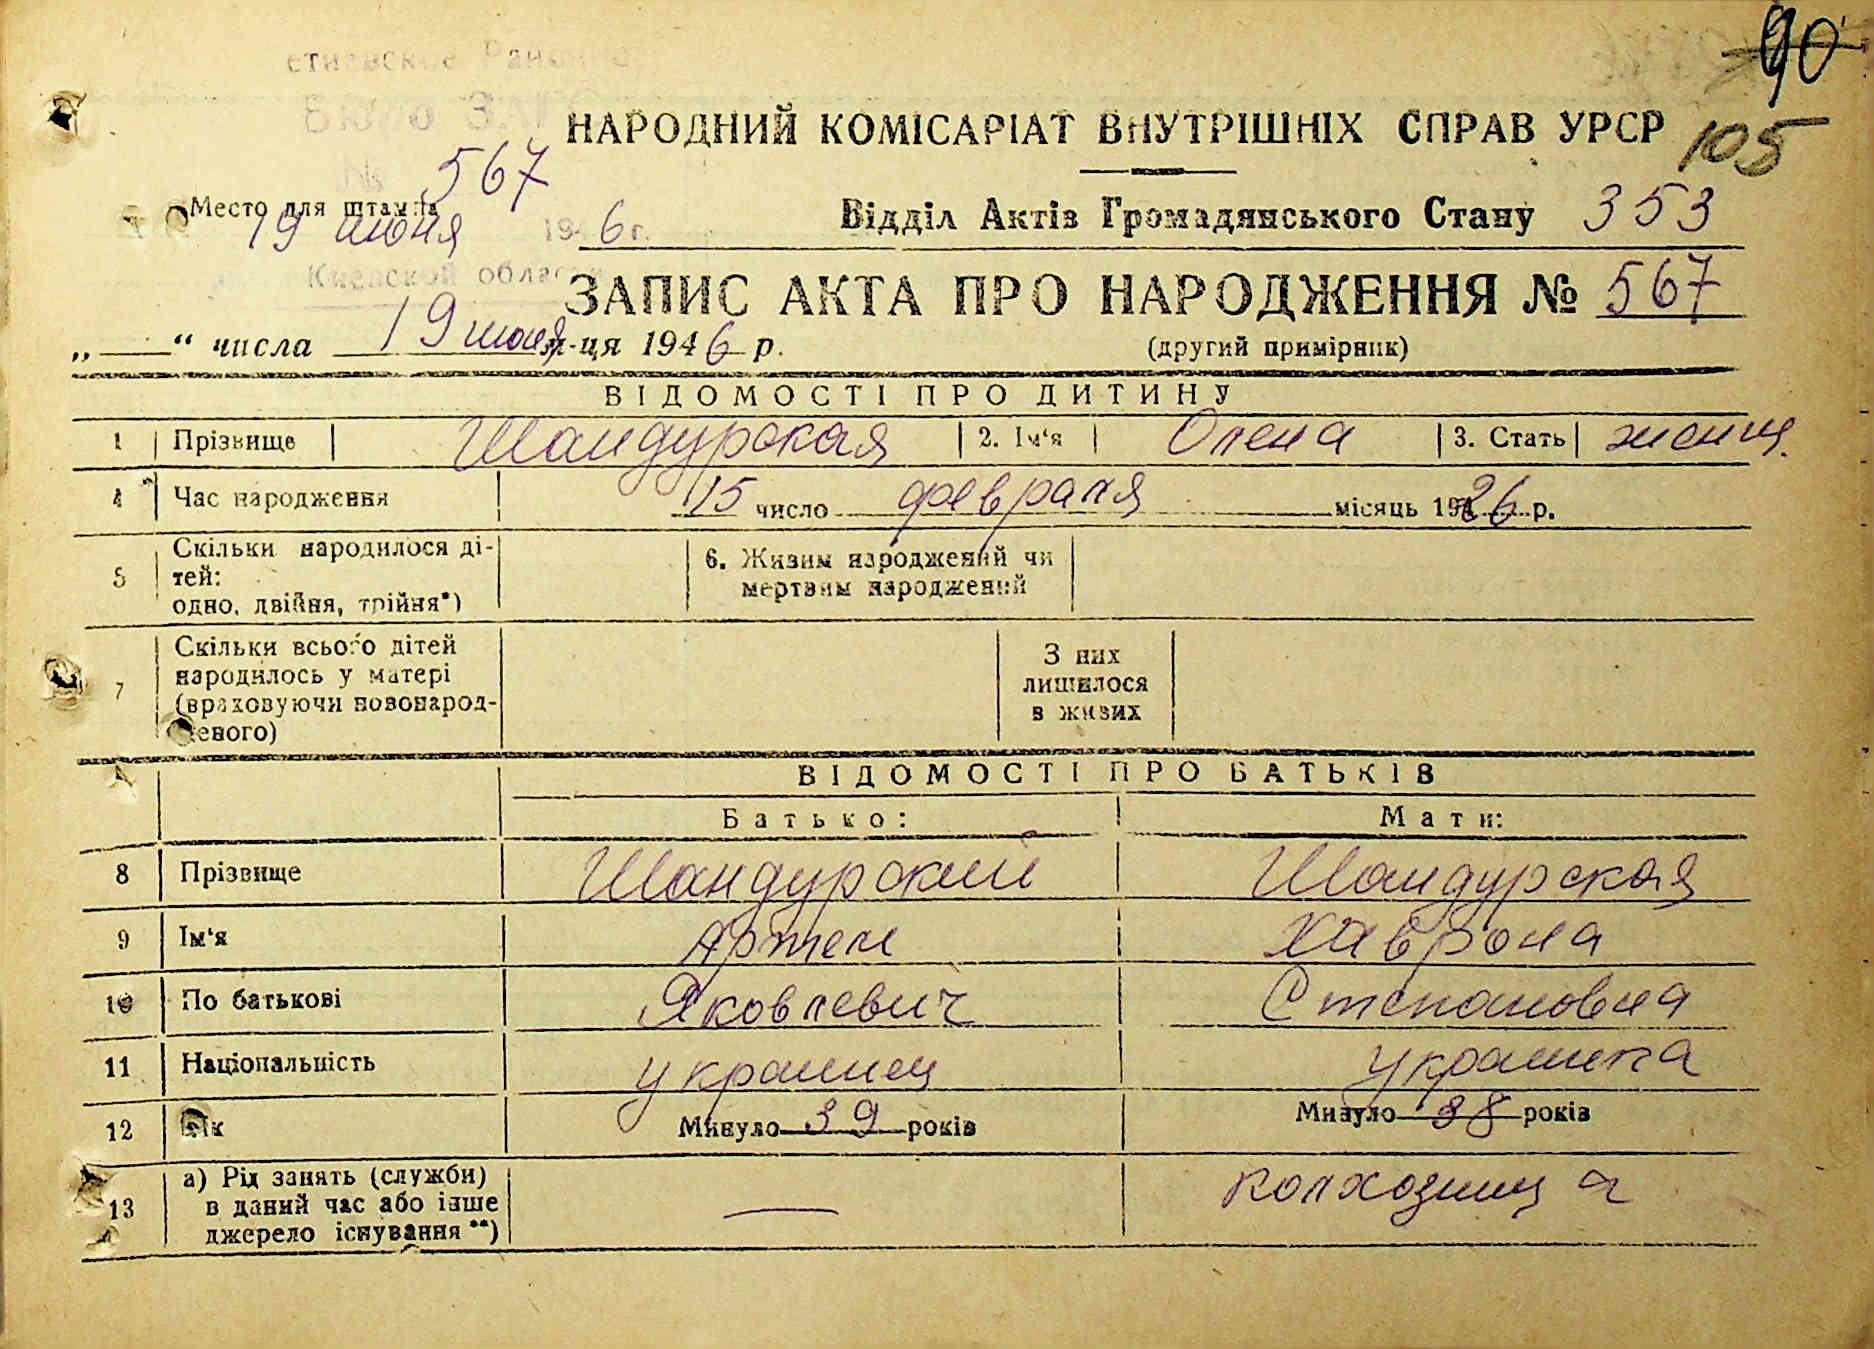 90
105
НАРОДНИЙ КОМІСАРІАТ ВНУТРІШНІХ СПРАВ УРСР
Бюро
№ 567
Место для штампа
19 июня 1946 г.
Киевской области
Відділ Актів Громадянського Стану 353
ЗАПИС АКТА ПРО НАРОДЖЕННЯ № 567
„ “ числа 19 июня м-ця 1946 р.
(другий примірник)
ВІДОМОСТІ ПРО ДИТИНУ
1 Прізвище Шандурская 2. Ім‘я Олена 3. Стать женщ.
4 Час народження 15 число февраля місяць 1926 р.
5 Скільки народилося ді-
тей:
одно, двійня, трійня*)
6. Живим народжений чи
мертвим народжений
7 Скільки всього дітей
народилось у матері
(враховуючи новонарод-
женого)
З них
лишилося
в живих
ВІДОМОСТІ ПРО БАТЬКІВ
Батько: Мати:
8 Прізвище Шандурский Шандурская
9 Ім‘я Артем Хаврона
10 По батькові Яковлевич Степановна
11 Національність украинец украинка
12 Вік Минуло 39 років Минуло 38 років
13 а) Рід занять (служби)
в даний час або інше
джерело існування **)
— колхозница